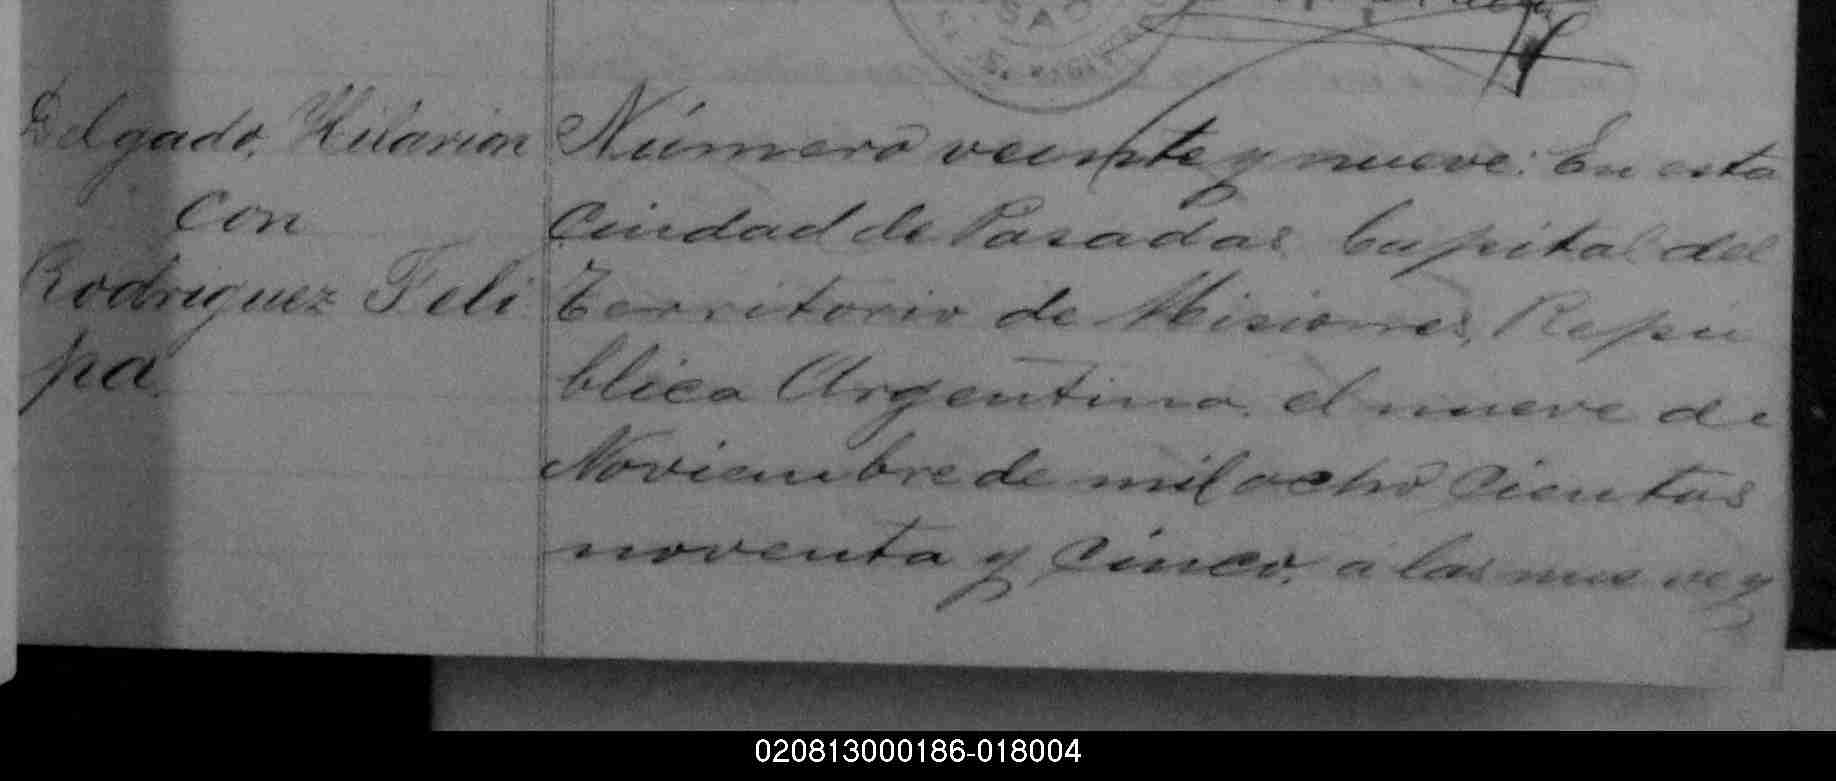 Delgado, Hilarion
con
Rodriguez Feli
pa.
Número veinte y nueve: En esta
Ciudad de Posadas Capital del
Territorio de Misiones, Repú
blica Argentina, el nueve de
Noviembre de mil ocho cientos
noventa y cinco, á las nueve y
020813000186-018004